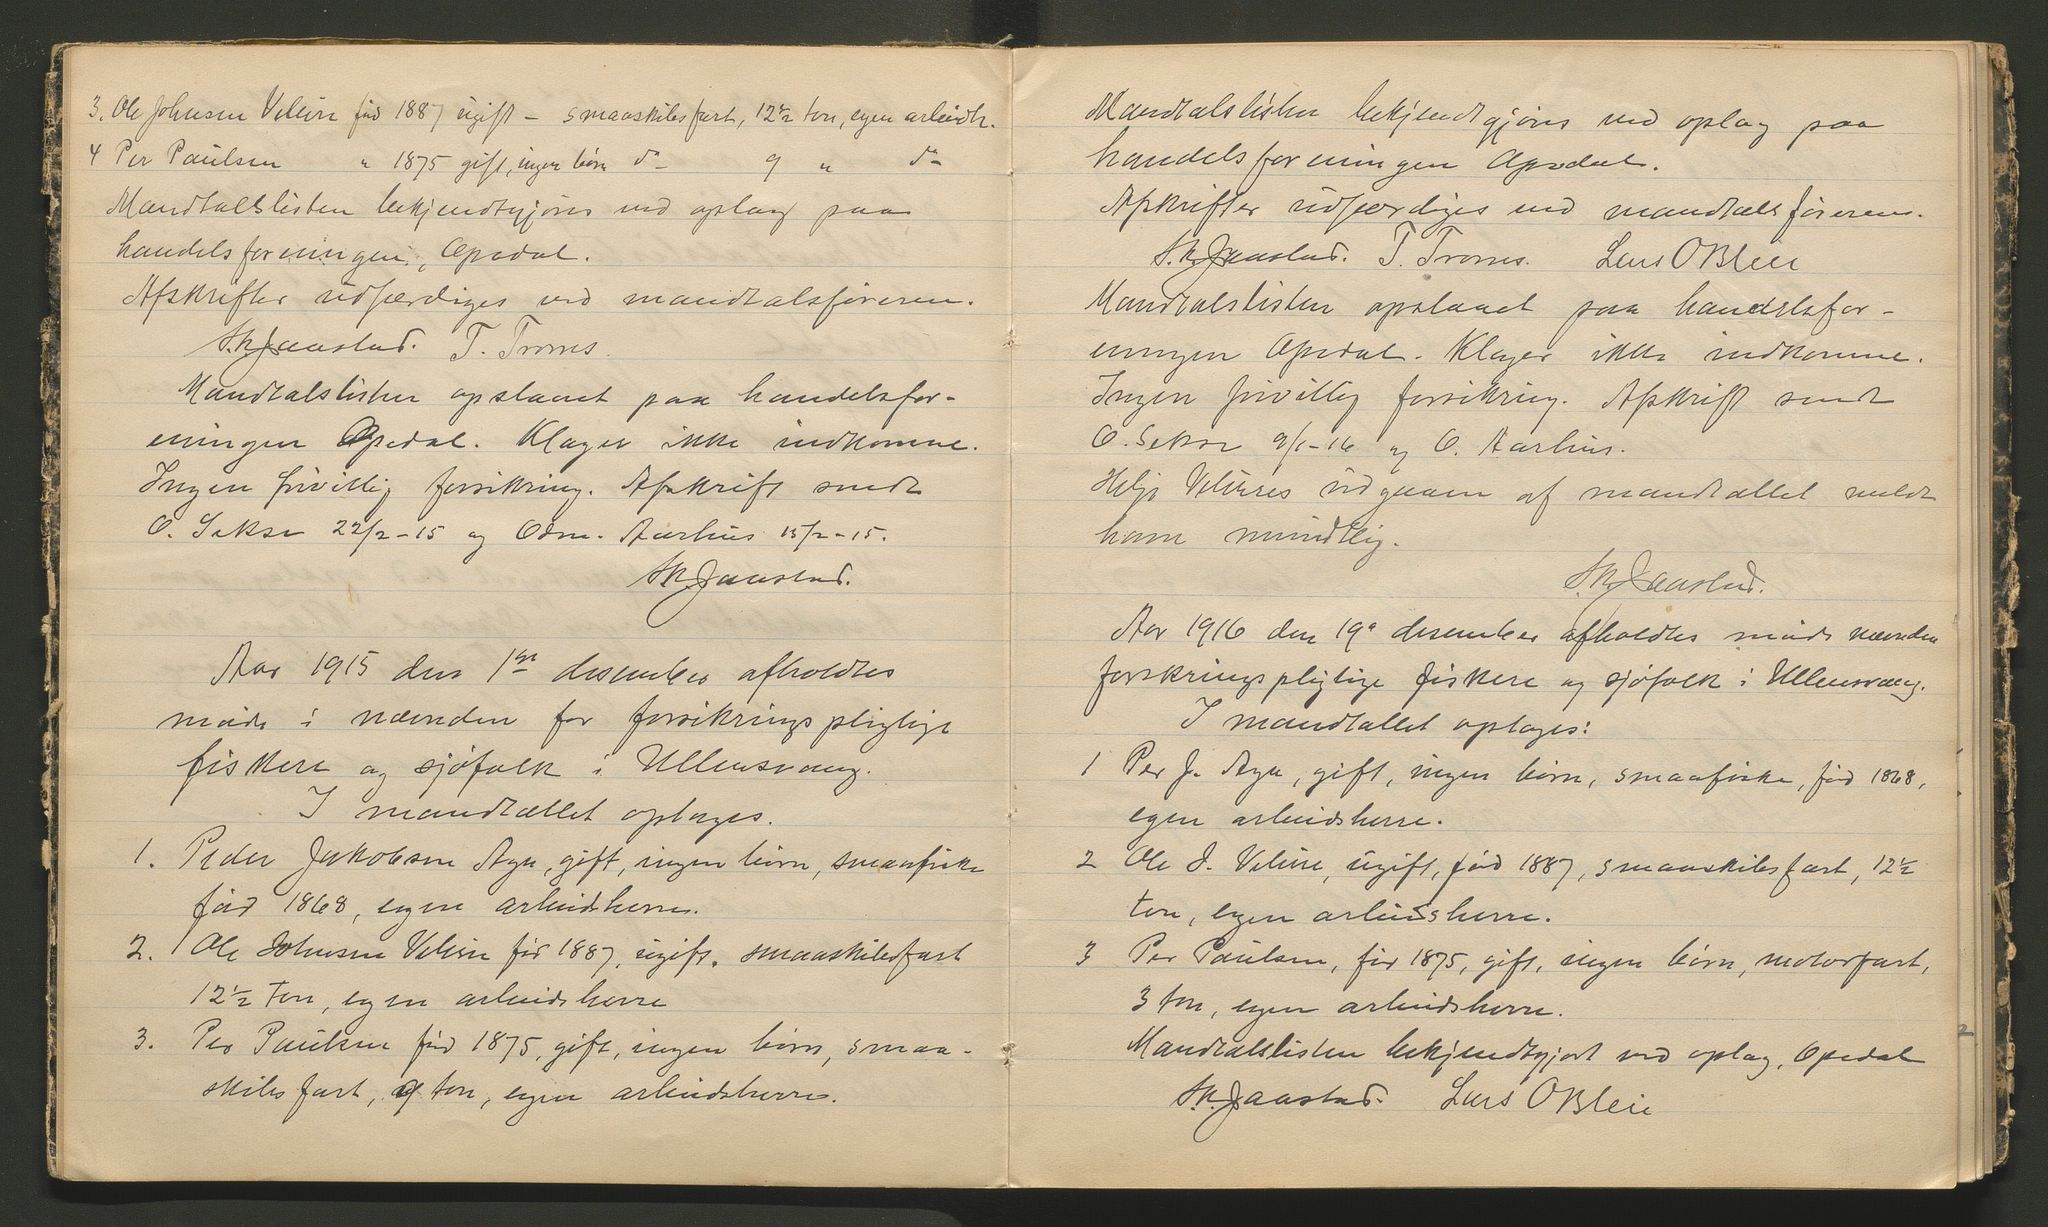 3. Ole Johnsen Velure född 1887 ugift – smaaskibsfart, 12½ ton, egen arbeidsh.
4 Per Paulsen " 1875 gift, ingen børn do 9 " do
Mandtalslisten bekjendtgjøres ved oplag paa
handelsforeningen, Opedal.
Afskrifter udfærdiges ved mandtalsføreren.
S.K. Jaastad. T. Trones.
Mandtalslisten opslaaet paa handelsfor-
eningen Opedal. Klager ikke indkomne.
Ingen frivillig forsikring. Afskrift sendt
O. Sekse 22/2-15 og Odm. Aarhus 15/2-15.
S.K. Jaastad.
Aar 1915 den 1ste desember afholdtes
møde i nævnden for forsikringspligtige
fiskere og sjøfolk i Ullensvang.
I mandtallet optages.
1. Peder Jakobsen Aga, gift, ingen børn, smaafiske
fød 1868, egen arbeidsherre.
2. Ole Johnsen Velure fød 1887, ugift, smaaskibsfart
12½ ton, egen arbeidsherre
3. Per Paulsen fød 1875, gift, ingen børn, smaa-
skibsfart, 9 ton, egen arbeidsherre.
Mandtalslisten bekjendtgjøres ved oplag paa
handelsforeningen Opedal.
Afskrifter udfærdiges ved mandtalsføreren.
S.K. Jaastad. T. Trones. Lars O Bleie
Mandtalslisten opslaaet paa handelsfor-
eningen Opedal. Klager ikke indkomne.
Ingen frivillig forsikring. Afskrift sendt
O. Sekse 9/1-16 og O. Aarhus.
Helje Velures udgaaen af mandtallet meldt
ham mundtlig.
S.K. Jaastad.
Aar 1916 den 19de desember afholdtes møde nævnden
forskringspligtige fiskere og sjøfolk i Ullensvang.
I mandtallet optages:
1 Per J. Aga, gift, ingen børn, smaafiske, fød 1868,
egen arbeidsherre.
2 Ole J. Velure, ugift, fød 1887, smaaskibsfart, 12½
ton, egen arbeidsherre.
3 Per Paulsen, fød 1875, gift, ingen børn, motorfart,
3 ton, egen arbeidsherre.
Mandtalslisten bekjendtgjort ved oplag, Opedal
S.K. Jaastad. Lars O Bleie